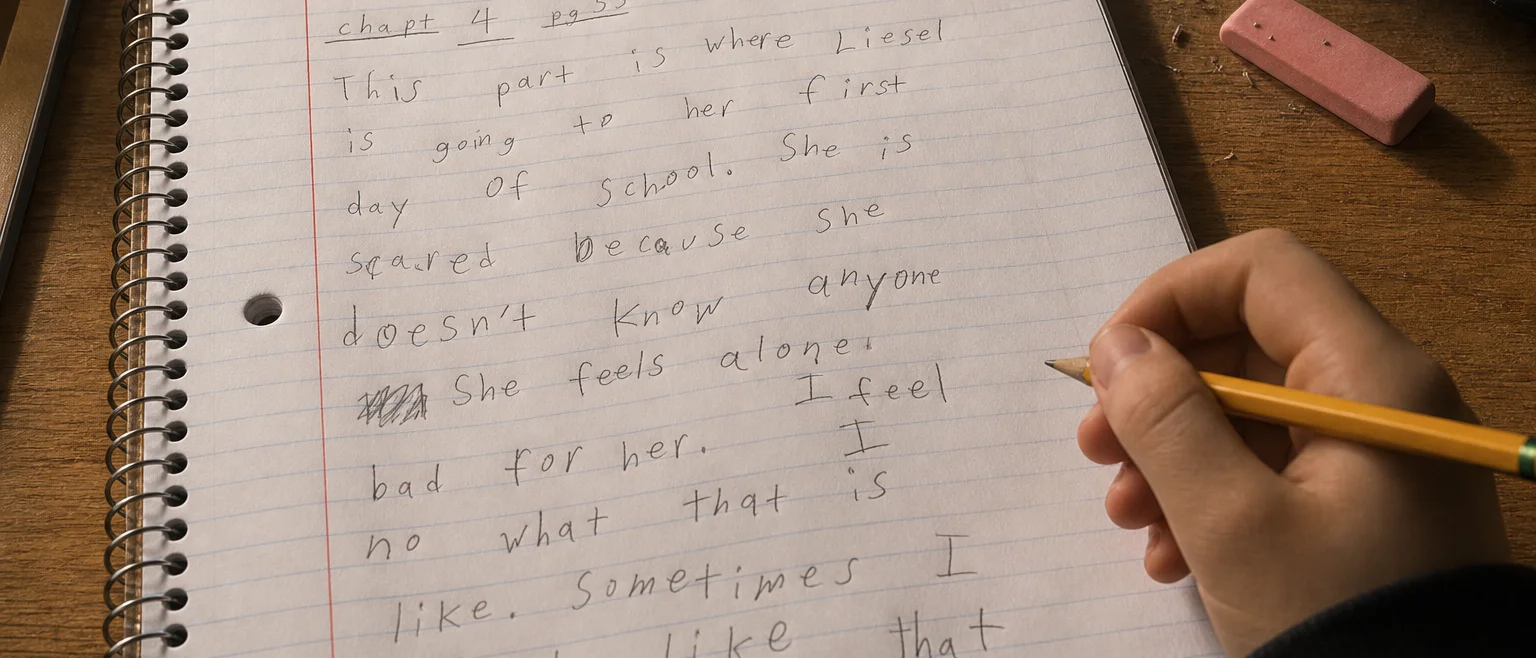 chapt 4 pg 55
This part is where Liesel
is going to her first
day of school. She is
scared because she
doesn't know anyone
She feels alone.
I feel
bad for her. I
no what that is
like. Sometimes I
like that